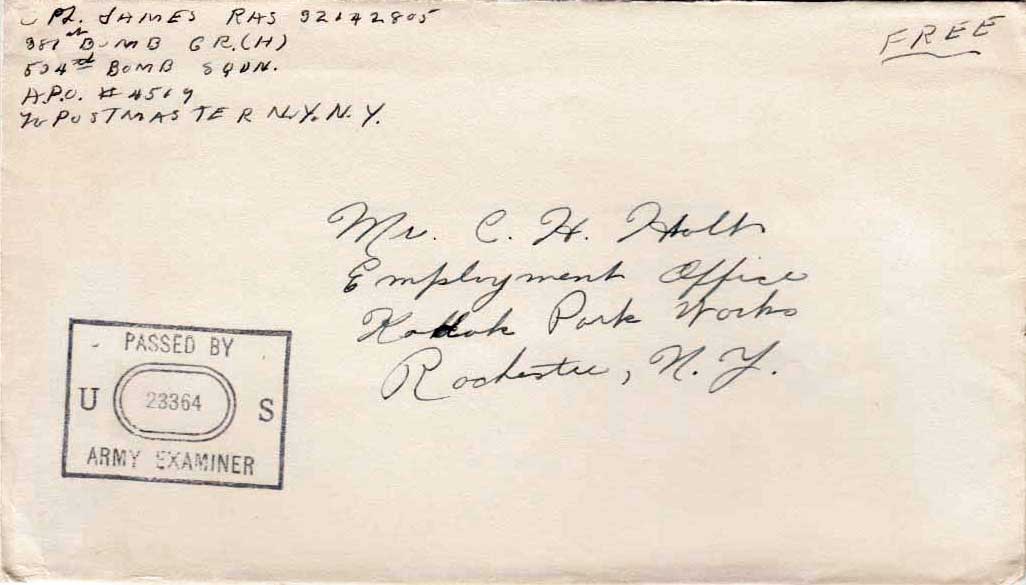 CPL. JAMES RAS 32142805
381st BOMB GR.(H)
534th BOMB SQDN.
A.P.O. # 4569
c/o POSTMASTER N.Y. N.Y.
FREE
Mr. C. H. Holt
Employment Office
Kodak Park Works
Rochester, N. Y.
PASSED BY
U 23364 S
ARMY EXAMINER